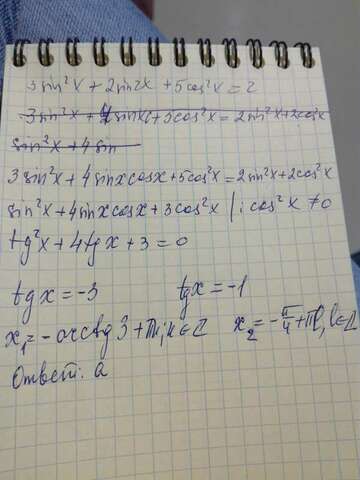 3sin²x + 2sin2x + 5cos²x = 2
3sin²x + 4sinx + 5cos²x = 2sin²x + 2cos²x
sin²x + 4sin
3sin²x + 4sinxcosx + 5cos²x = 2sin²x + 2cos²x
sin²x + 4sinxcosx + 3cos²x / : cos²x ≠ 0
tg²x + 4tgx + 3 = 0
tgx = -3 tgx = -1
x₁ = -arctg3 + πn, n∈Z x₂ = -π/4 + πl, l∈Z
Ответ: а